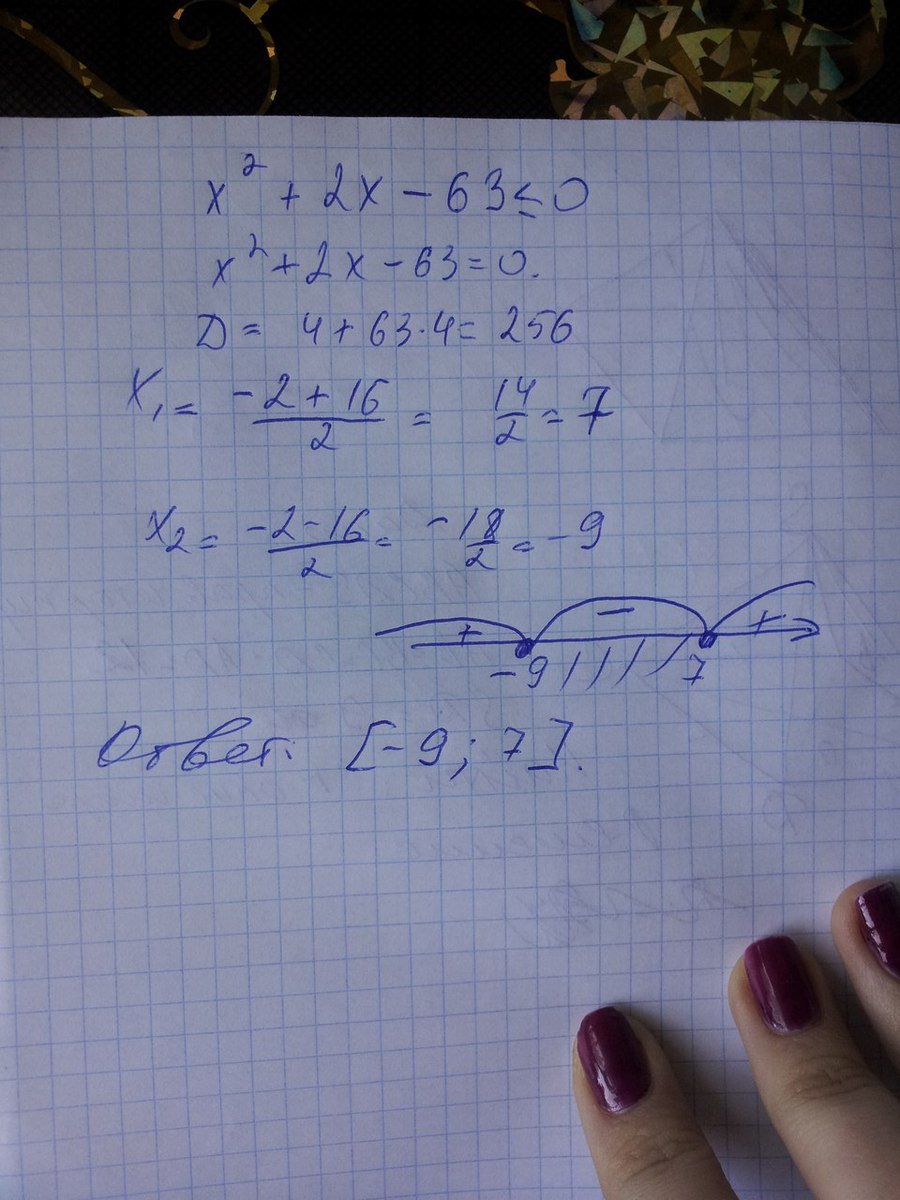 x² + 2x - 63 ≤ 0
x² + 2x - 63 = 0.
D = 4 + 63·4 = 256
X₁ = (-2 + 16)/2 = 14/2 = 7
X₂ = (-2 - 16)/2 = -18/2 = -9
+ - +
-9 7
Ответ: [-9; 7].